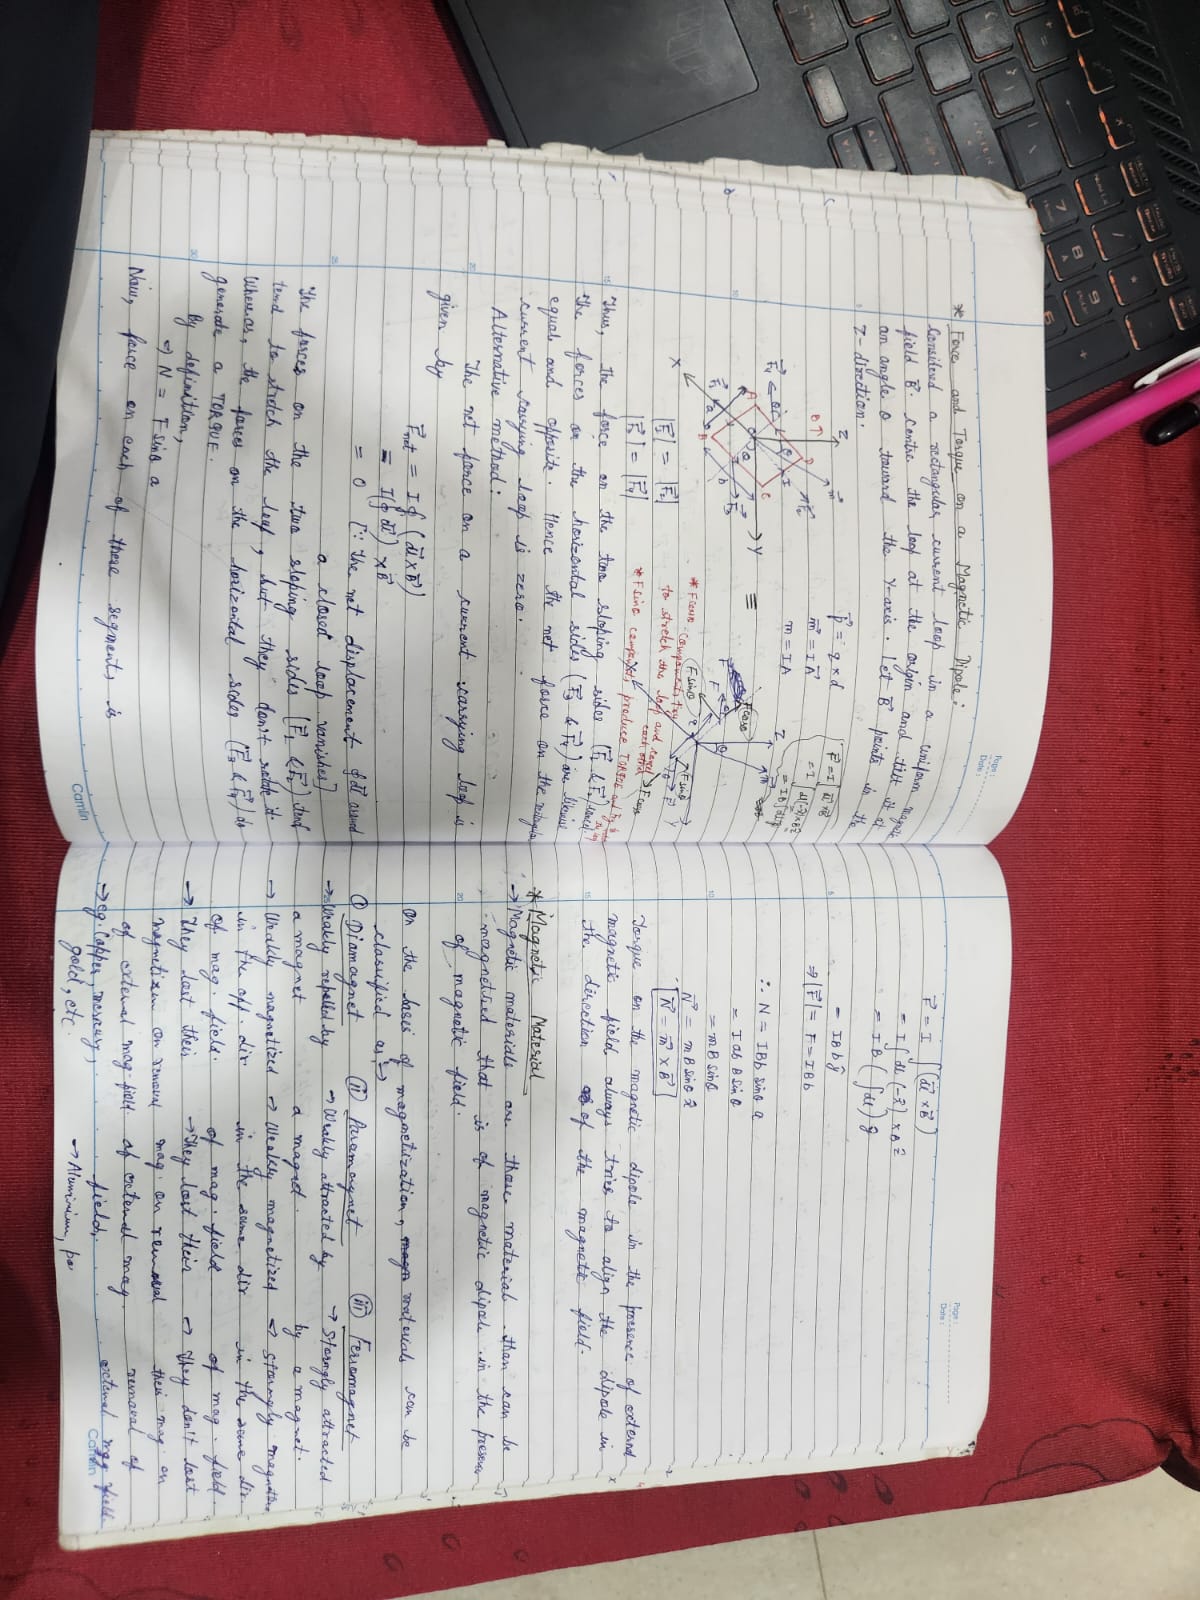 * Force and Torque on a Magnetic Dipole:
Considered a rectangular current loop in a uniform magnetic
field B⃗. Centre the loop at the origin and tilt it at
an angle θ toward the Y-axis. Let B⃗ points in the
Z-direction.
p⃗ = q × d
m⃗ = IA⃗
m = IA
|F⃗₁| = |F⃗₂|
|F⃗₃| = |F⃗₄|
* Fcosθ components try
to stretch the loop and cancel
each other
* Fsinθ components produce TORQUE
Thus, the force on the two sloping sides (F⃗₁ & F⃗₂) cancel.
The forces on the horizontal sides (F⃗₃ & F⃗₄) are likewise
equal and opposite. Hence the net force on the rectangular
current carrying loop is zero.
Alternative method:
The net force on a current carrying loop is
given by
F⃗net = I∮(dl⃗ × B⃗)
= I(∮dl⃗) × B⃗
= 0 [∵ the net displacement ∮dl⃗ around
a closed loop vanishes]
The forces on the two sloping sides (F⃗₁ & F⃗₂) tend
tend to stretch the loop, but they don't rotate it.
Whereas, the forces on the horizontal sides (F⃗₃ & F⃗₄) do
generate a TORQUE.
By definition,
⇒ N = F sinθ a
Now, force on each of these segments is
F⃗ = I ∫(dl⃗ × B⃗)
= I ∫dl (-x̂) × Bẑ
= IB (∫dl) ŷ
= IBb ŷ
⇒ |F⃗| = F = IBb
∴ N = IBb sinθ a
= I ab B sinθ
= mB sinθ
N⃗ = mB sinθ x̂
N⃗ = m⃗ × B⃗
Torque on the magnetic dipole in the presence of external
magnetic field always tries to align the dipole in
the direction of the magnetic field.
* Magnetic Material
→ Magnetic materials are those material than can be
magnetised that is of magnetic dipole in the presence
of magnetic field.
On the basis of magnetization, materials can be
classified as →
① Diamagnet ⅱ Paramagnet ⅲ Ferromagnet
→ Weakly repelled by → Weakly attracted by → Strongly attracted
a magnet a magnet. by a magnet.
→ Weakly magnetized → Weakly magnetized → Strongly magnetize
in the opp. dir. in the same dir in the same dir.
of mag. field. of mag. field of mag. field.
→ They lost their → They lost their → They don't lost
magnetism on removal mag. on removal their mag on
of external mag. field. of external mag. removal of
→ eg. Copper, mercury, field. external mag field
gold, etc. → Aluminium,
Page:
Date:
Camlin
Page:
Date:
Camlin